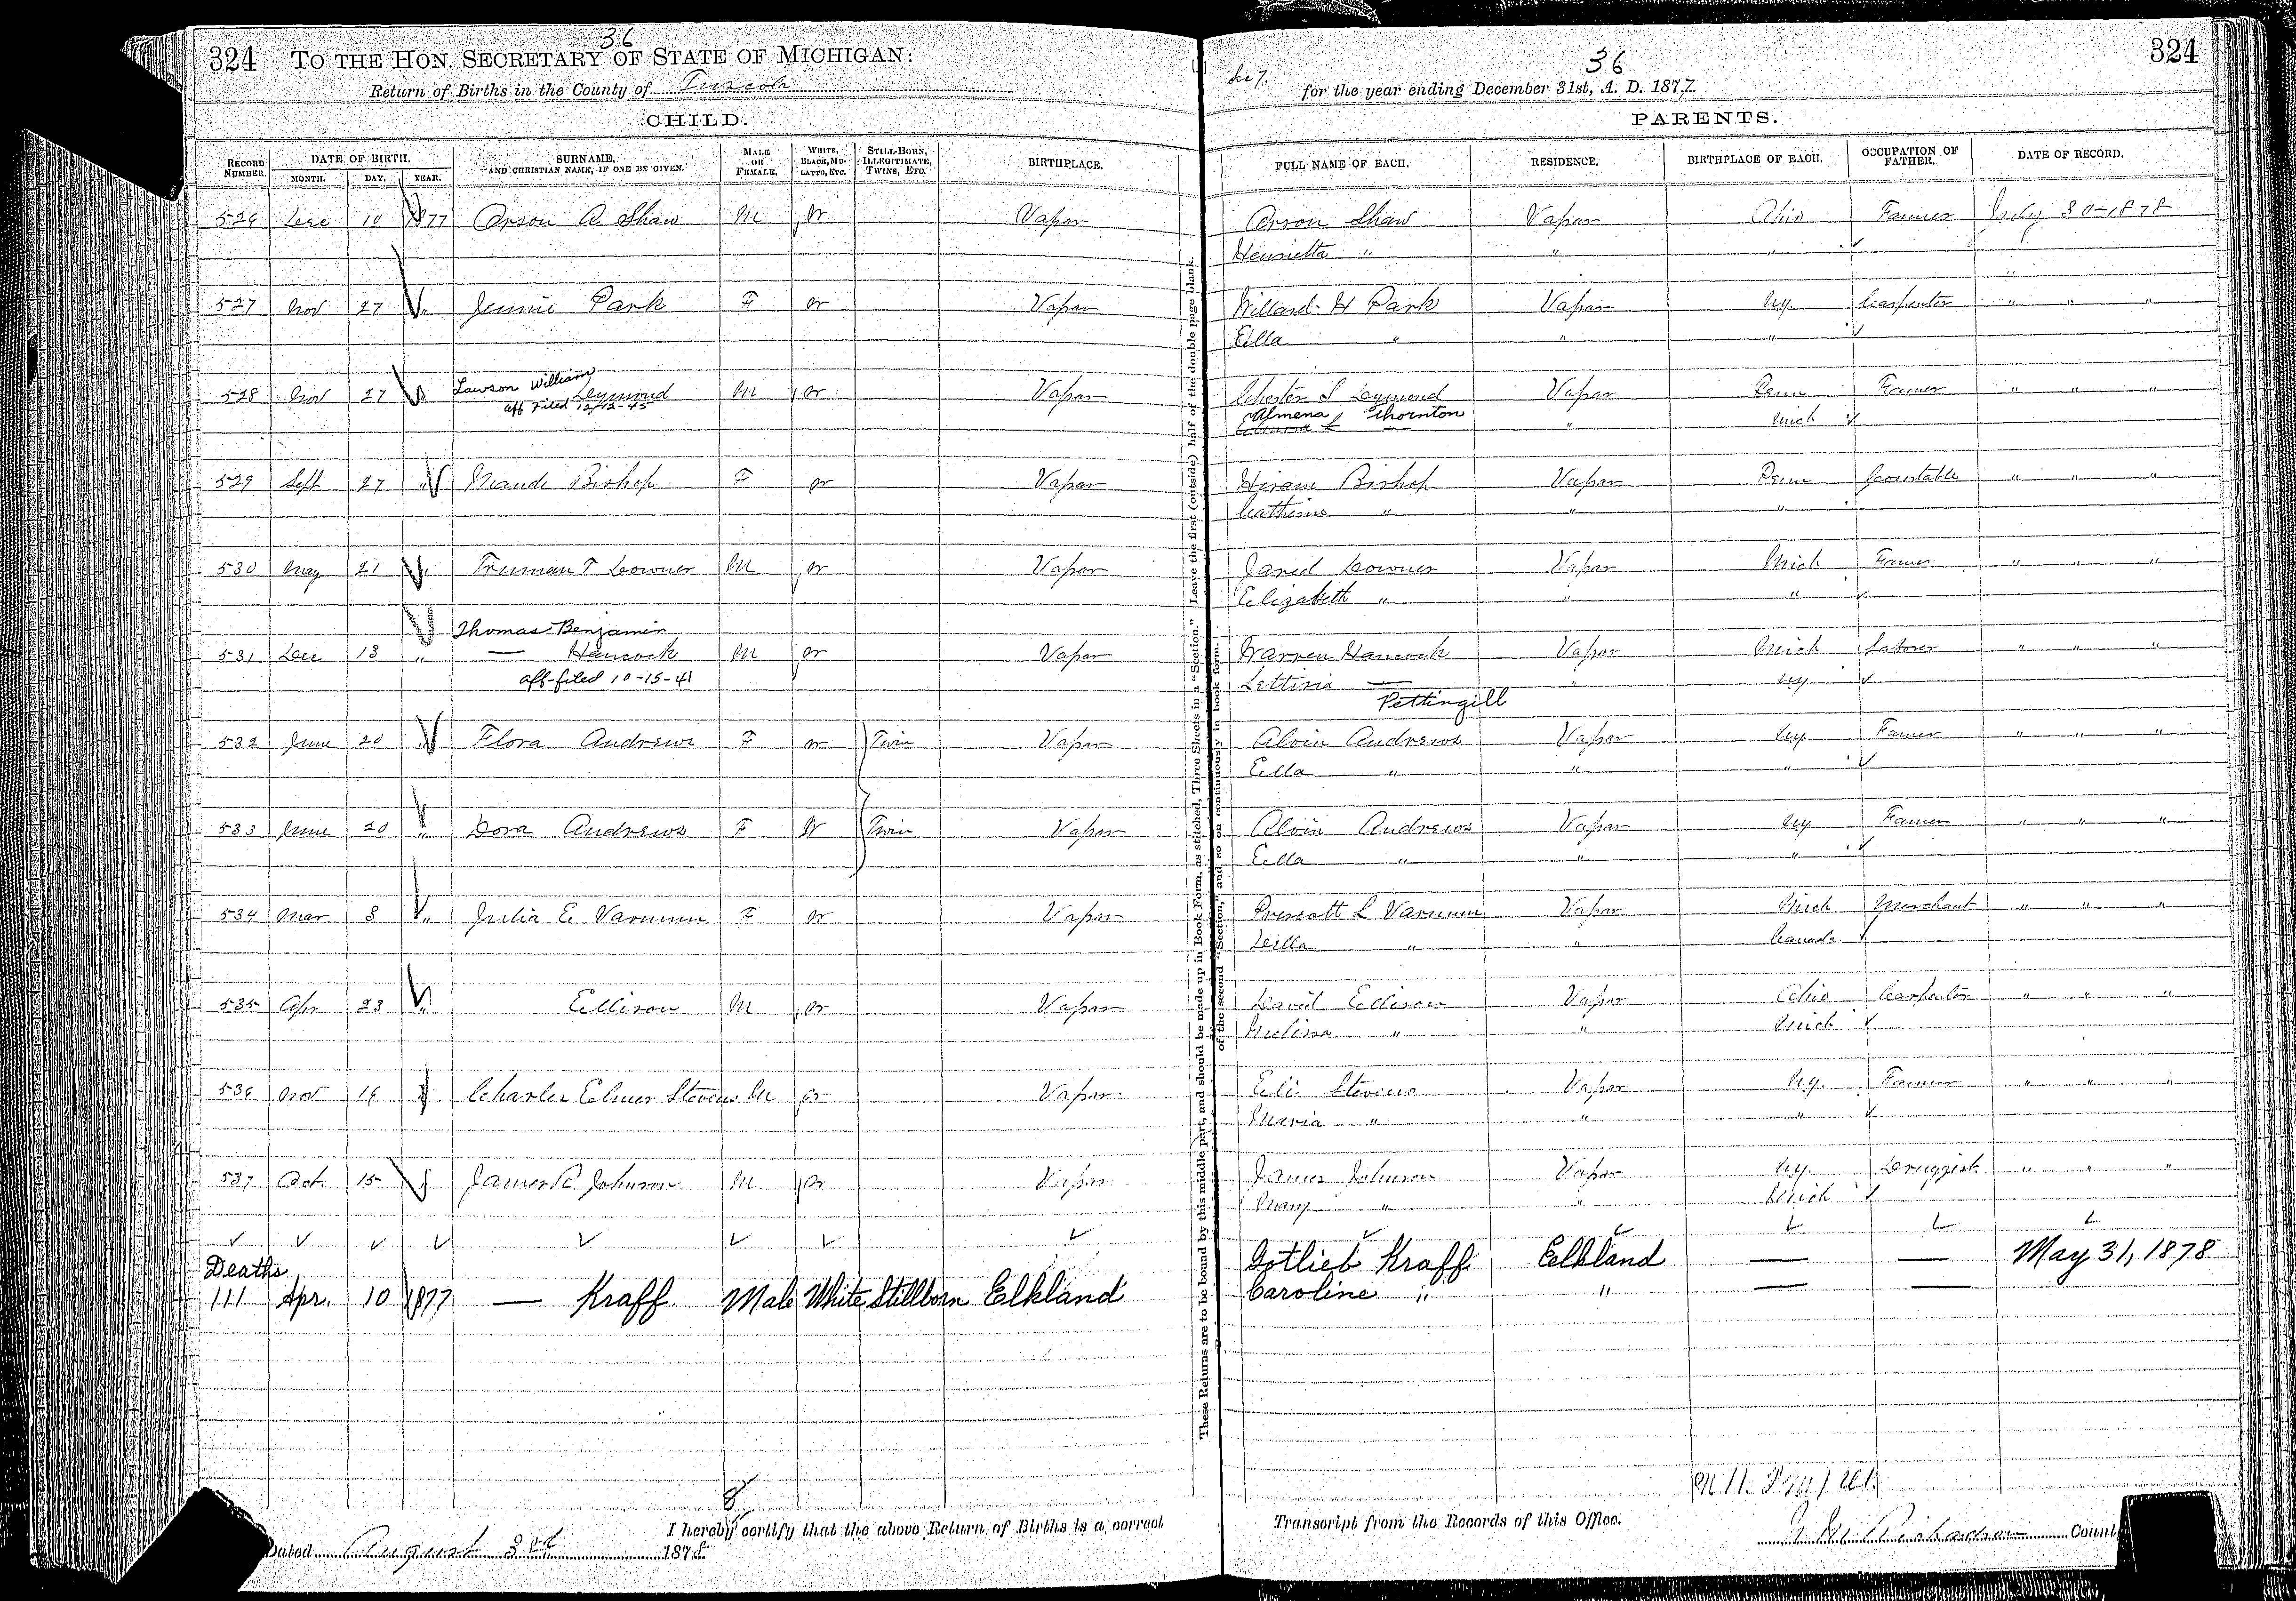 324 TO THE HON. SECRETARY OF STATE OF MICHIGAN:
36
Return of Births in the County of Tuscola
CHILD.
RECORD NUMBER. DATE OF BIRTH. MONTH. DAY. YEAR. SURNAME, AND CHRISTIAN NAME, IF ONE BE GIVEN. MALE OR FEMALE. WHITE, BLACK, MULATTO, ETC. STILL-BORN, ILLEGITIMATE, TWINS, ETC. BIRTHPLACE.
526 Dec 10 1877 Orson A. Shaw M W Vassar
527 Nov 27 " Jennie Park F W Vassar
Lawson William
528 Nov 27 " Deymond M W Vassar
aff Filed 12-12-45
529 Sept 27 " Maude Bishop F W Vassar
530 May 21 " Truman T Downer M W Vassar
Thomas Benjamin
531 Dec 13 " — Hancock M W Vassar
aff-filed 10-15-41
532 June 20 " Flora Andrews F W Twin Vassar
533 June 20 " Dora Andrews F W Twin Vassar
534 Mar 3 " Julia E Varnum F W Vassar
535 Apr 23 " Ellison M W Vassar
536 Nov 16 " Charles Elmer Stevens M W Vassar
537 Oct 15 " James R Johnson M W Vassar
Deaths
111 Apr. 10 1877 — Kraff. Male White Stillborn Elkland
8
I hereby certify that the above Return of Births is a correct
Dated August 3rd 1878.
These Returns are to be bound by this middle part, and should be made up in Book Form, as stitched, Three Sheets in a "Section." Leave the first (outside) half of the double page blank.
of the second "Section," and so on continuously in book form.
36
324
for the year ending December 31st, A. D. 1877.
PARENTS.
FULL NAME OF EACH. RESIDENCE. BIRTHPLACE OF EACH. OCCUPATION OF FATHER. DATE OF RECORD.
Orson Shaw Vassar Ohio Farmer July 30-1878
Henrietta " " "
Willard H Park Vassar Ny. Carpenter " " "
Ella " " "
Chester S Deymond Vassar Penn Farmer " " "
Almena Thornton " Mich
Hiram Bishop Vassar Penn Constable " " "
Catherine " " "
Jared Downer Vassar Mich Farmer " " "
Elizabeth " " "
Warren Hancock Vassar Mich Laborer " " "
Lettisia — " Ny
Pettingill
Alvin Andrews Vassar Ny Farmer " " "
Ella " " "
Alvin Andrews Vassar Ny Farmer " " "
Ella " " "
Prescott L Varnum Vassar Mich Merchant " " "
Della " " Canada
David Ellison Vassar Ohio Carpenter " " "
Melissa " " Mich
Eli Stevens Vassar Ny. Farmer " " "
Maria " " "
James Johnson Vassar Ny. Druggist " " "
Mary " " Mich
Gotlieb Kraff Elkland — — May 31, 1878
Caroline " " — —
Transcript from the Records of this Office.
Richardson County